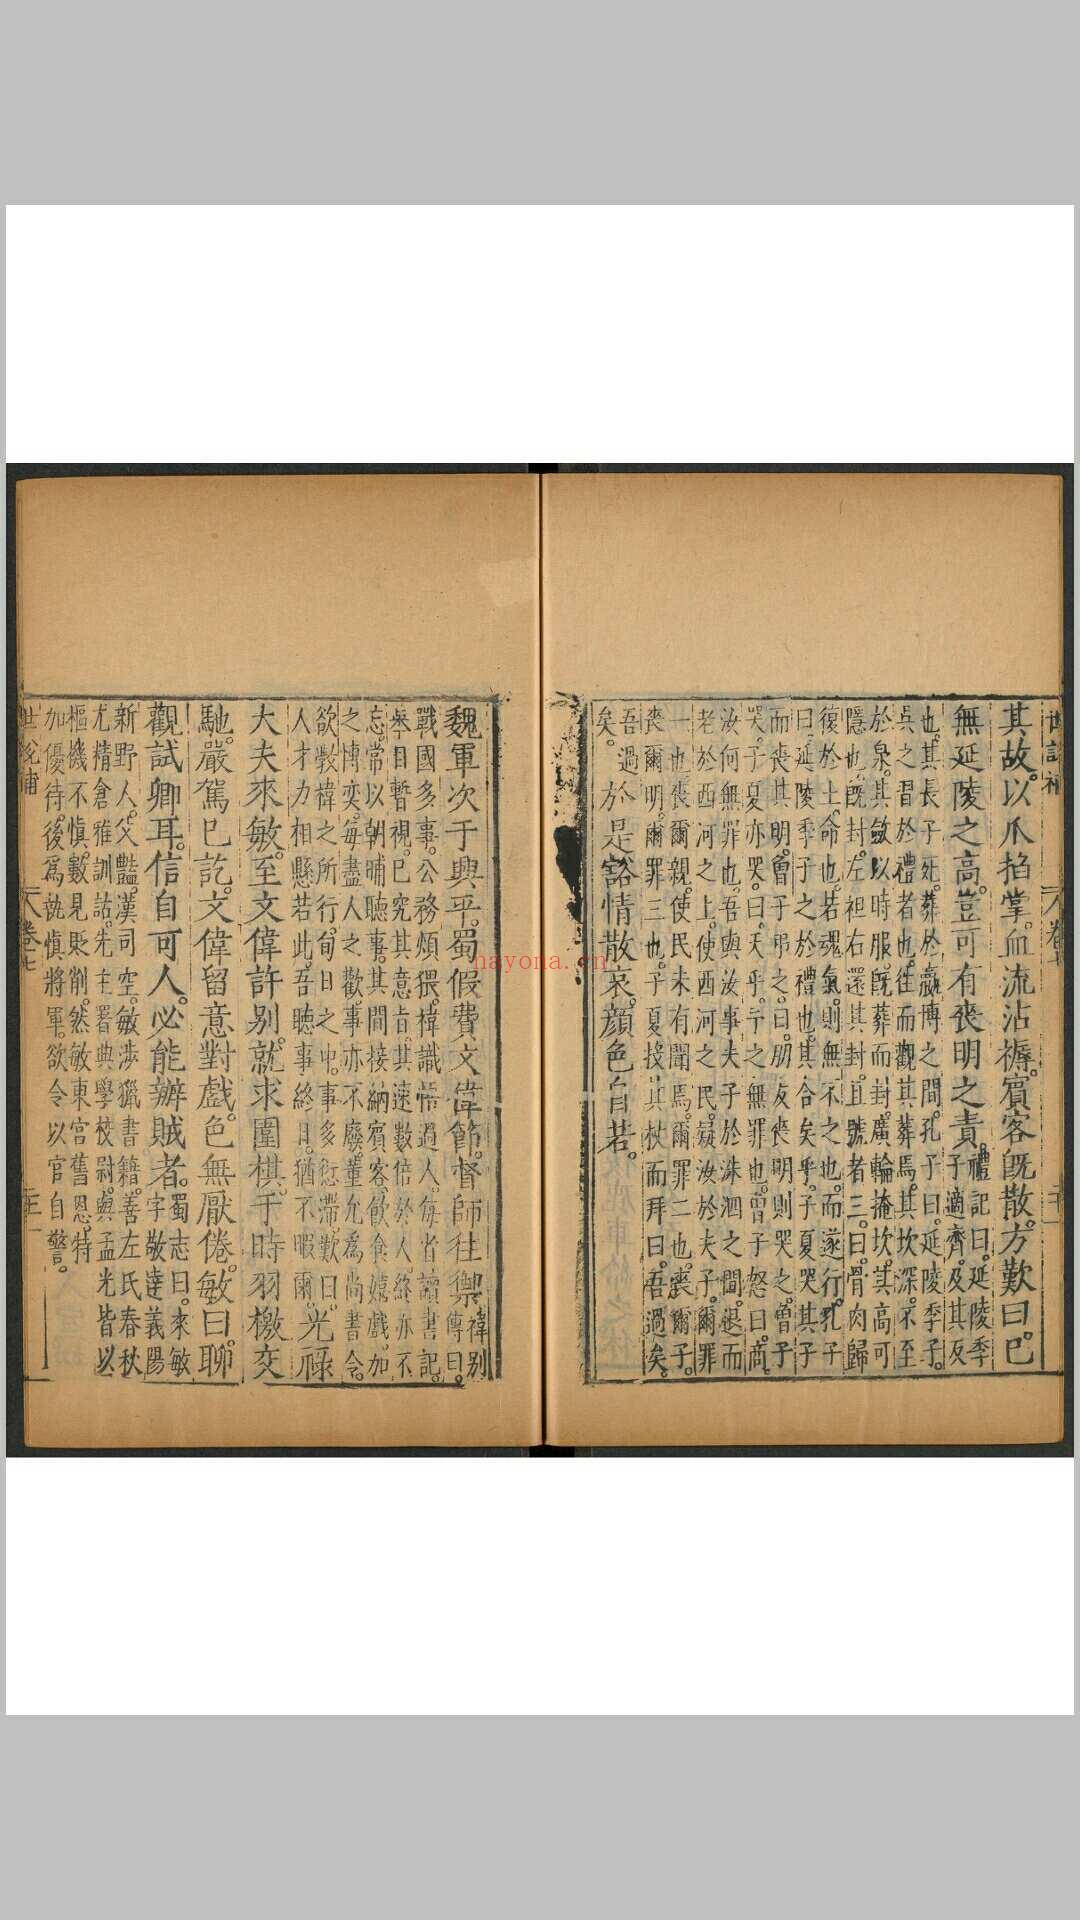 世說補 卷七
其故。以爪掐掌。血流沾褥。賓客既散。方歎曰。已
無延陵之高。豈可有喪明之責。禮記曰。延陵季
子適齊。及其反
也。其長子死。葬於嬴博之間。孔子曰。延陵季子。
吳之習於禮者也。往而觀其葬焉。其坎深。不至
於泉。其斂以時服。旣葬而封。廣輪掩坎。其高可
隱也。旣封。左袒右還其封。且號者三。曰。骨肉歸
復於土。命也。若魂氣。則無不之也。而遂行。孔子
曰。延陵季子之於禮也。其合矣乎。子夏哭其子
而喪其明。曾子弔之。曰。朋友喪明則哭之。曾子
哭。子夏亦哭。曰。天乎。予之無罪也。曾子怒曰。商。
汝何無罪也。吾與汝事夫子於洙泗之間。退而
老於西河之上。使西河之民。疑汝於夫子。爾罪
一也。喪爾親。使民未有聞焉。爾罪二也。喪爾子。
喪爾明。爾罪三也。子夏投其杖而拜曰。吾過矣。
吾過
矣。於是豁情散哀。顔色自若。
魏軍次于興平。蜀假費文偉節。督師往禦。禕別
傳曰。
戰國多事。公務煩猥。禕識悟過人。每省讀書記。
舉目暫視。已究其意旨。其速數倍於人。終亦不
忘。常以朝晡聽事。其間接納賓客。飲食嬉戲。加
之博奕。每盡人之歡。事亦不廢。董允爲尚書令。
欲斆禕之所行。旬日之中。事多愆滯。歎曰。
人才力相懸若此。吾聽事終日。猶不暇爾。光祿
大夫來敏。至文偉許別。就求圍棋。于時羽檄交
馳。嚴駕已訖。文偉留意對戲。色無厭倦。敏曰。聊
觀試卿耳。信自可人。必能辦賊者。蜀志曰。來敏
字敬達。義陽
新野人。父豔。漢司空。敏涉獵書籍。善左氏春秋。
尤精倉雅訓詁。先主署典學校尉。與孟光皆以
樞機不愼。數見貶削。然敏東宮舊恩。特
加優待。後爲執愼將軍。欲令以官自警。
世說補 卷七